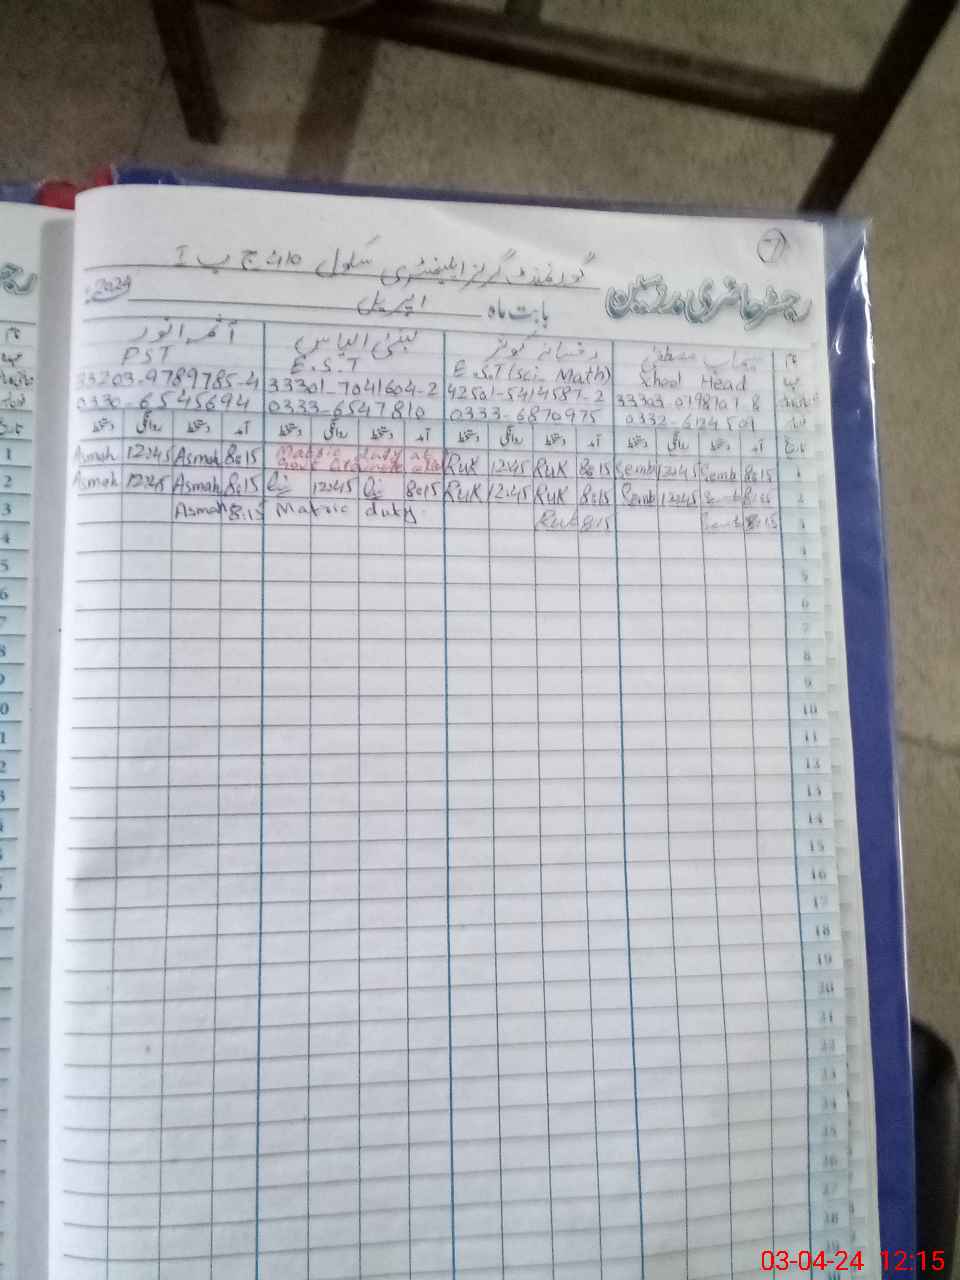 7
گورنمنٹ گرلز ایلیمنٹری سکول 410 ج ب I
رجسٹر حاضری مدرسین
بابت ماہ اپریل 2024
نام سیماب مصطفیٰ رخسانہ کوثر لبنیٰ الیاس آثمہ انور
عہدہ School Head E.S.T (Sci_ Math) E.S.T PST
42501-5414587-2 33301-7041604-2 33203-9789785-4
0332-6124501 0333-6870975 0333-6547810 0330-6545694
تاریخ آمد دستخط روانگی دستخط آمد دستخط روانگی دستخط آمد دستخط روانگی دستخط آمد دستخط روانگی دستخط
Asmah 12:45 Asmah 8:15 Matric duty at Govt Ruk 12:45 Ruk 8:15 Semb 12:45 Semb 8:15 1
Asmah 12:45 Asmah 8:15 12:45 8:15 Ruk 12:45 Ruk 8:15 Semb 12:45 Semb 8:15 2
Asmah 8:15 Matric duty. Ruk 8:15 Semb 8:15 3
4
5
6
7
8
9
10
11
12
13
14
15
16
17
18
19
20
21
22
23
24
25
26
27
28
29
03-04-24 12:15